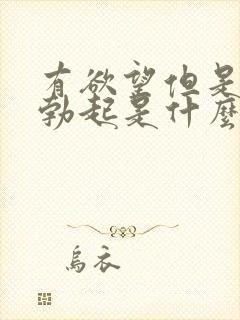 有欲望但是
勃起是什麼
烏衣